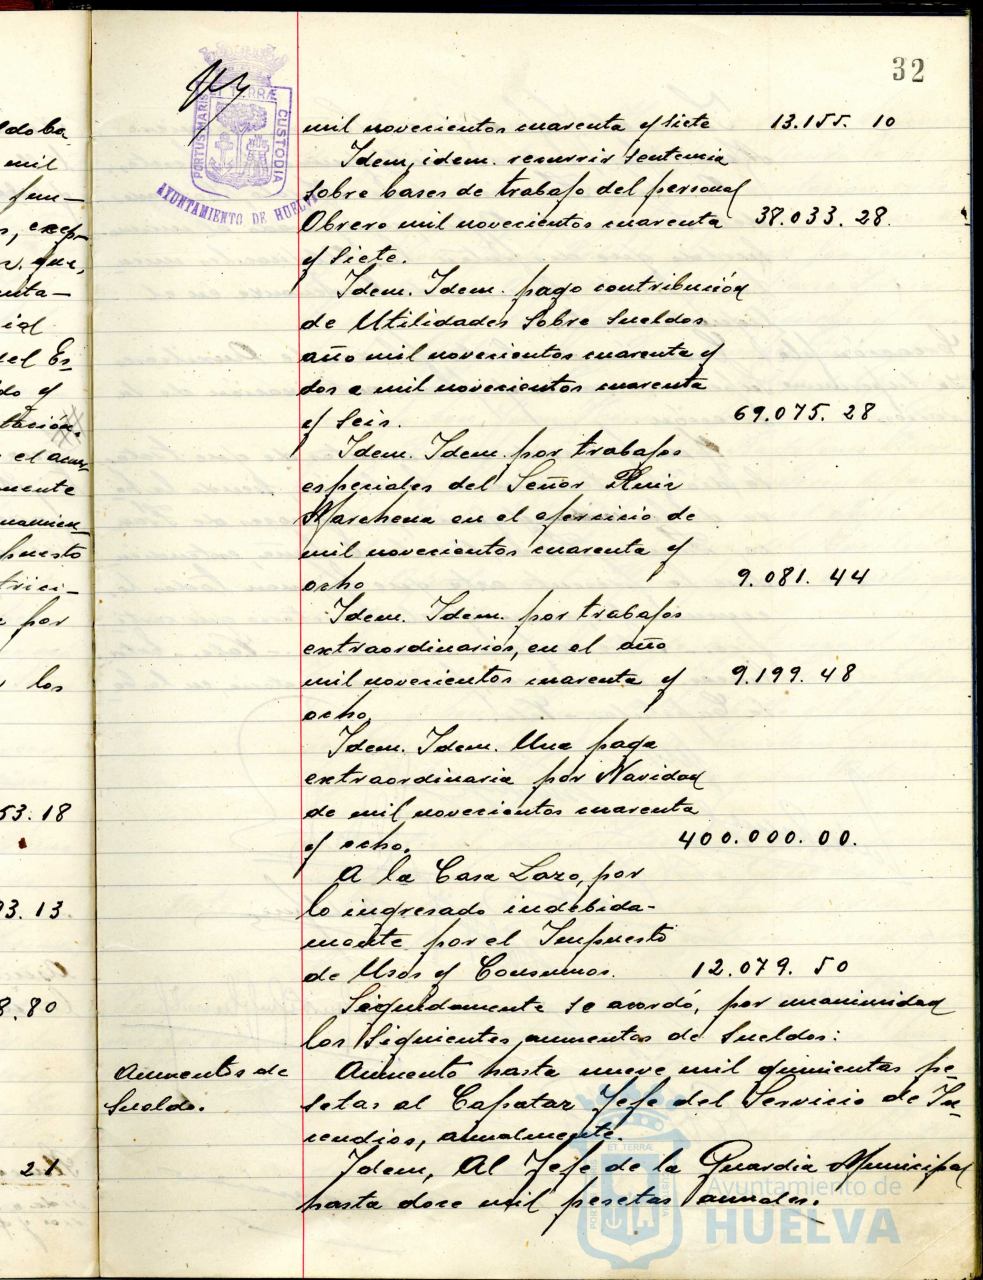 32
PORTUS MARIS
ET TERRÆ
CUSTODIA
AYUNTAMIENTO DE HUELVA
mil novecientos cuarenta y siete 13.155. 10
Idem, idem. recurrir sentencia
sobre bases de trabajo del personal
Obrero mil novecientos cuarenta 38.033. 28.
y siete.
Idem. Idem. pago contribución
de Utilidades sobre sueldos
año mil novecientos cuarenta y
dos a mil novecientos cuarenta
y seis. 69.075. 28
Idem. Idem. por trabajos
especiales del Señor Ruiz
Marchena en el ejercicio de
mil novecientos cuarenta y
ocho 9.081. 44
Idem. Idem. por trabajos
extraordinarios, en el año
mil novecientos cuarenta y 9.199. 48
ocho.
Idem. Idem. Una paga
extraordinaria por Navidad
de mil novecientos cuarenta
y ocho. 400.000.00.
A la Casa Lazo, por
lo ingresado indebida-
mente por el Impuesto
de Usos y Consumos. 12.079. 50
Seguidamente se acordó, por unanimidad
los siguientes aumentos de sueldos:
Aumentos de
sueldo.
Aumento hasta nueve mil quinientas pe-
setas al Capataz Jefe del Servicio de In-
cendios, anualmente.
Idem, Al Jefe de la Guardia Municipal
hasta doce mil pesetas anuales.
mil
y
por
los
53.18
93.13.
8.80
21
ET TERRÆ
Ayuntamiento de
HUELVA